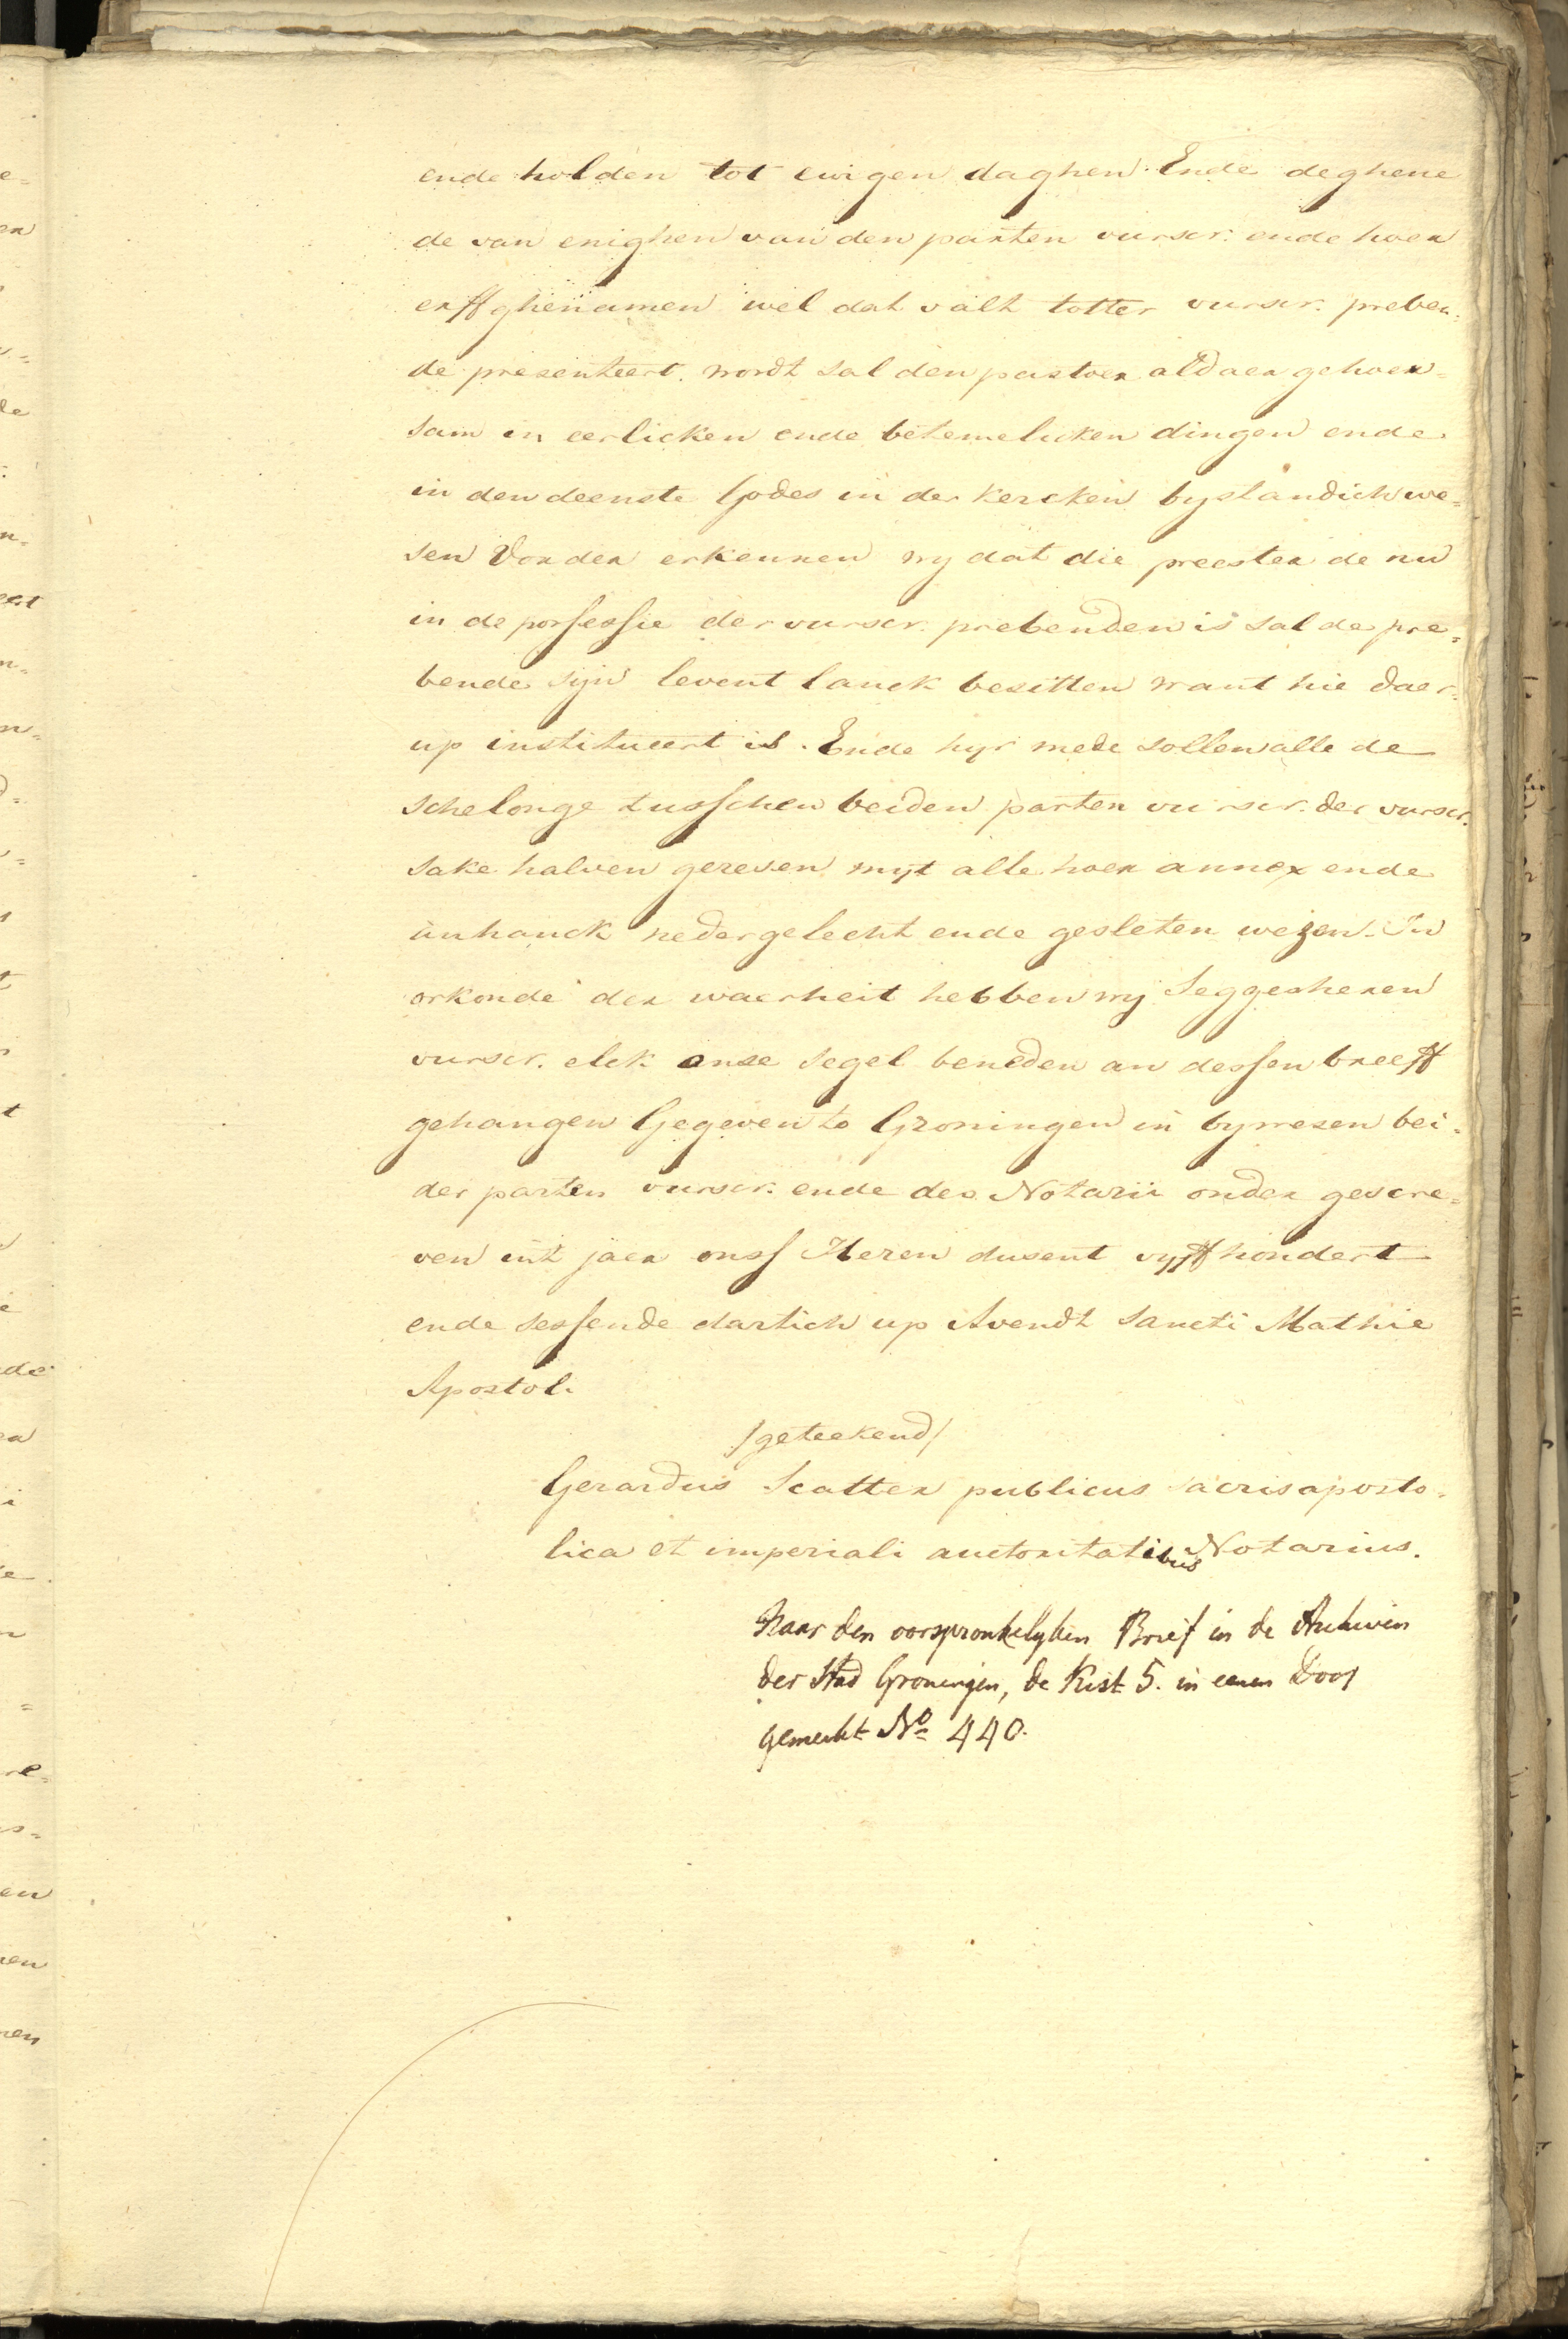 ende holden tot ewigen daghen. Ende deghene
de van enighen van den parten vurscr. ende hoer
erffghenamen wel dat valt totter vurscr. preben=
de presenteert wordt sal den pastoer aldaer gehoer=
sam in eerlicken ende betemelicken dingen ende
in den deenste Godes in der kercken bystandich we=
sen Vorder erkennen wy dat die preester de nu
in de possessie der vurscr. prebenden is sal de pre=
bende sijn levent lanck besitten want hie daer=
up institueert is. Ende hyr mede sollen alle de
schelonge tusschen beiden parten vurscr. der vurscr.
sake halven geresen myt alle hoer annex ende
anhanck nedergelecht ende gesleten wezen. In
orkonde der waerheit hebben wy Seggesheren
vurscr. elck onse segel beneden an dessen breeff
gehangen Gegeven to Groningen in bywesen bei=
der parten vurscr. ende des Notarii onder gescre=
ven int jaer onss Heren dusent vyffhondert
ende sessende dartich up Avendt Sancti Mathie
Apostol.
/geteekend/
Gerardus Scatter publicus sacris aposto=
lica et imperiali auctoritatibus Notarius.
Naar den oorspronkelyken Brief in de Archiven
der Stad Groningen, de Kist 5. in eenen Doos
gemerkt No 440.